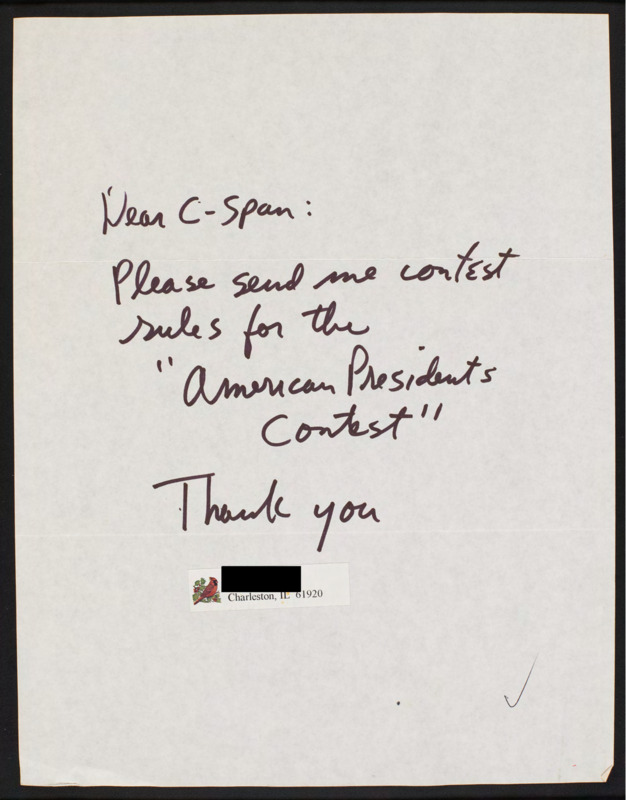 Dear C-Span:
Please send me contest
rules for the
"American Presidents
Contest"
Thank you
Charleston, IL 61920